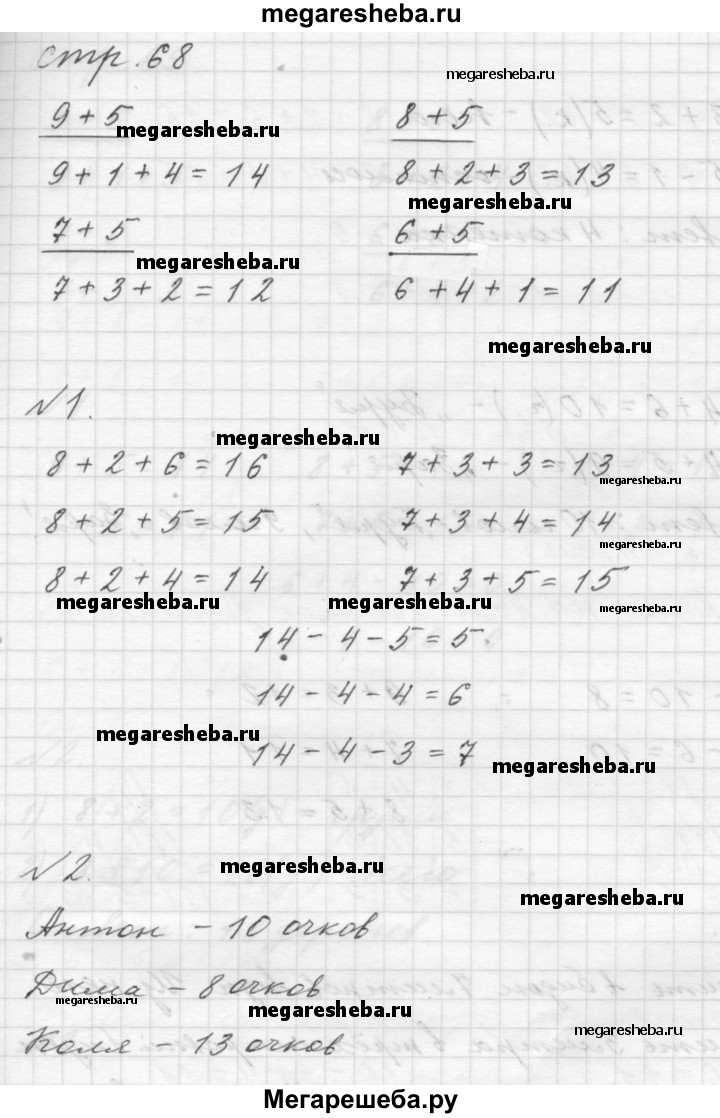 megaresheba.ru
стр. 68
megaresheba.ru
9 + 5 8 + 5
megaresheba.ru
9 + 1 + 4 = 14 8 + 2 + 3 = 13
megaresheba.ru
7 + 5 6 + 5
megaresheba.ru
7 + 3 + 2 = 12 6 + 4 + 1 = 11
megaresheba.ru
№1.
megaresheba.ru
8 + 2 + 6 = 16 7 + 3 + 3 = 13
megaresheba.ru
8 + 2 + 5 = 15 7 + 3 + 4 = 14
megaresheba.ru
8 + 2 + 4 = 14 7 + 3 + 5 = 15
megaresheba.ru megaresheba.ru megaresheba.ru
14 - 4 - 5 = 5.
14 - 4 - 4 = 6
megaresheba.ru
14 - 4 - 3 = 7
megaresheba.ru
№2.
megaresheba.ru
megaresheba.ru
Антон - 10 очков
Дима - 8 очков
megaresheba.ru
megaresheba.ru
megaresheba.ru
Коля - 13 очков
Мегарешеба.ру